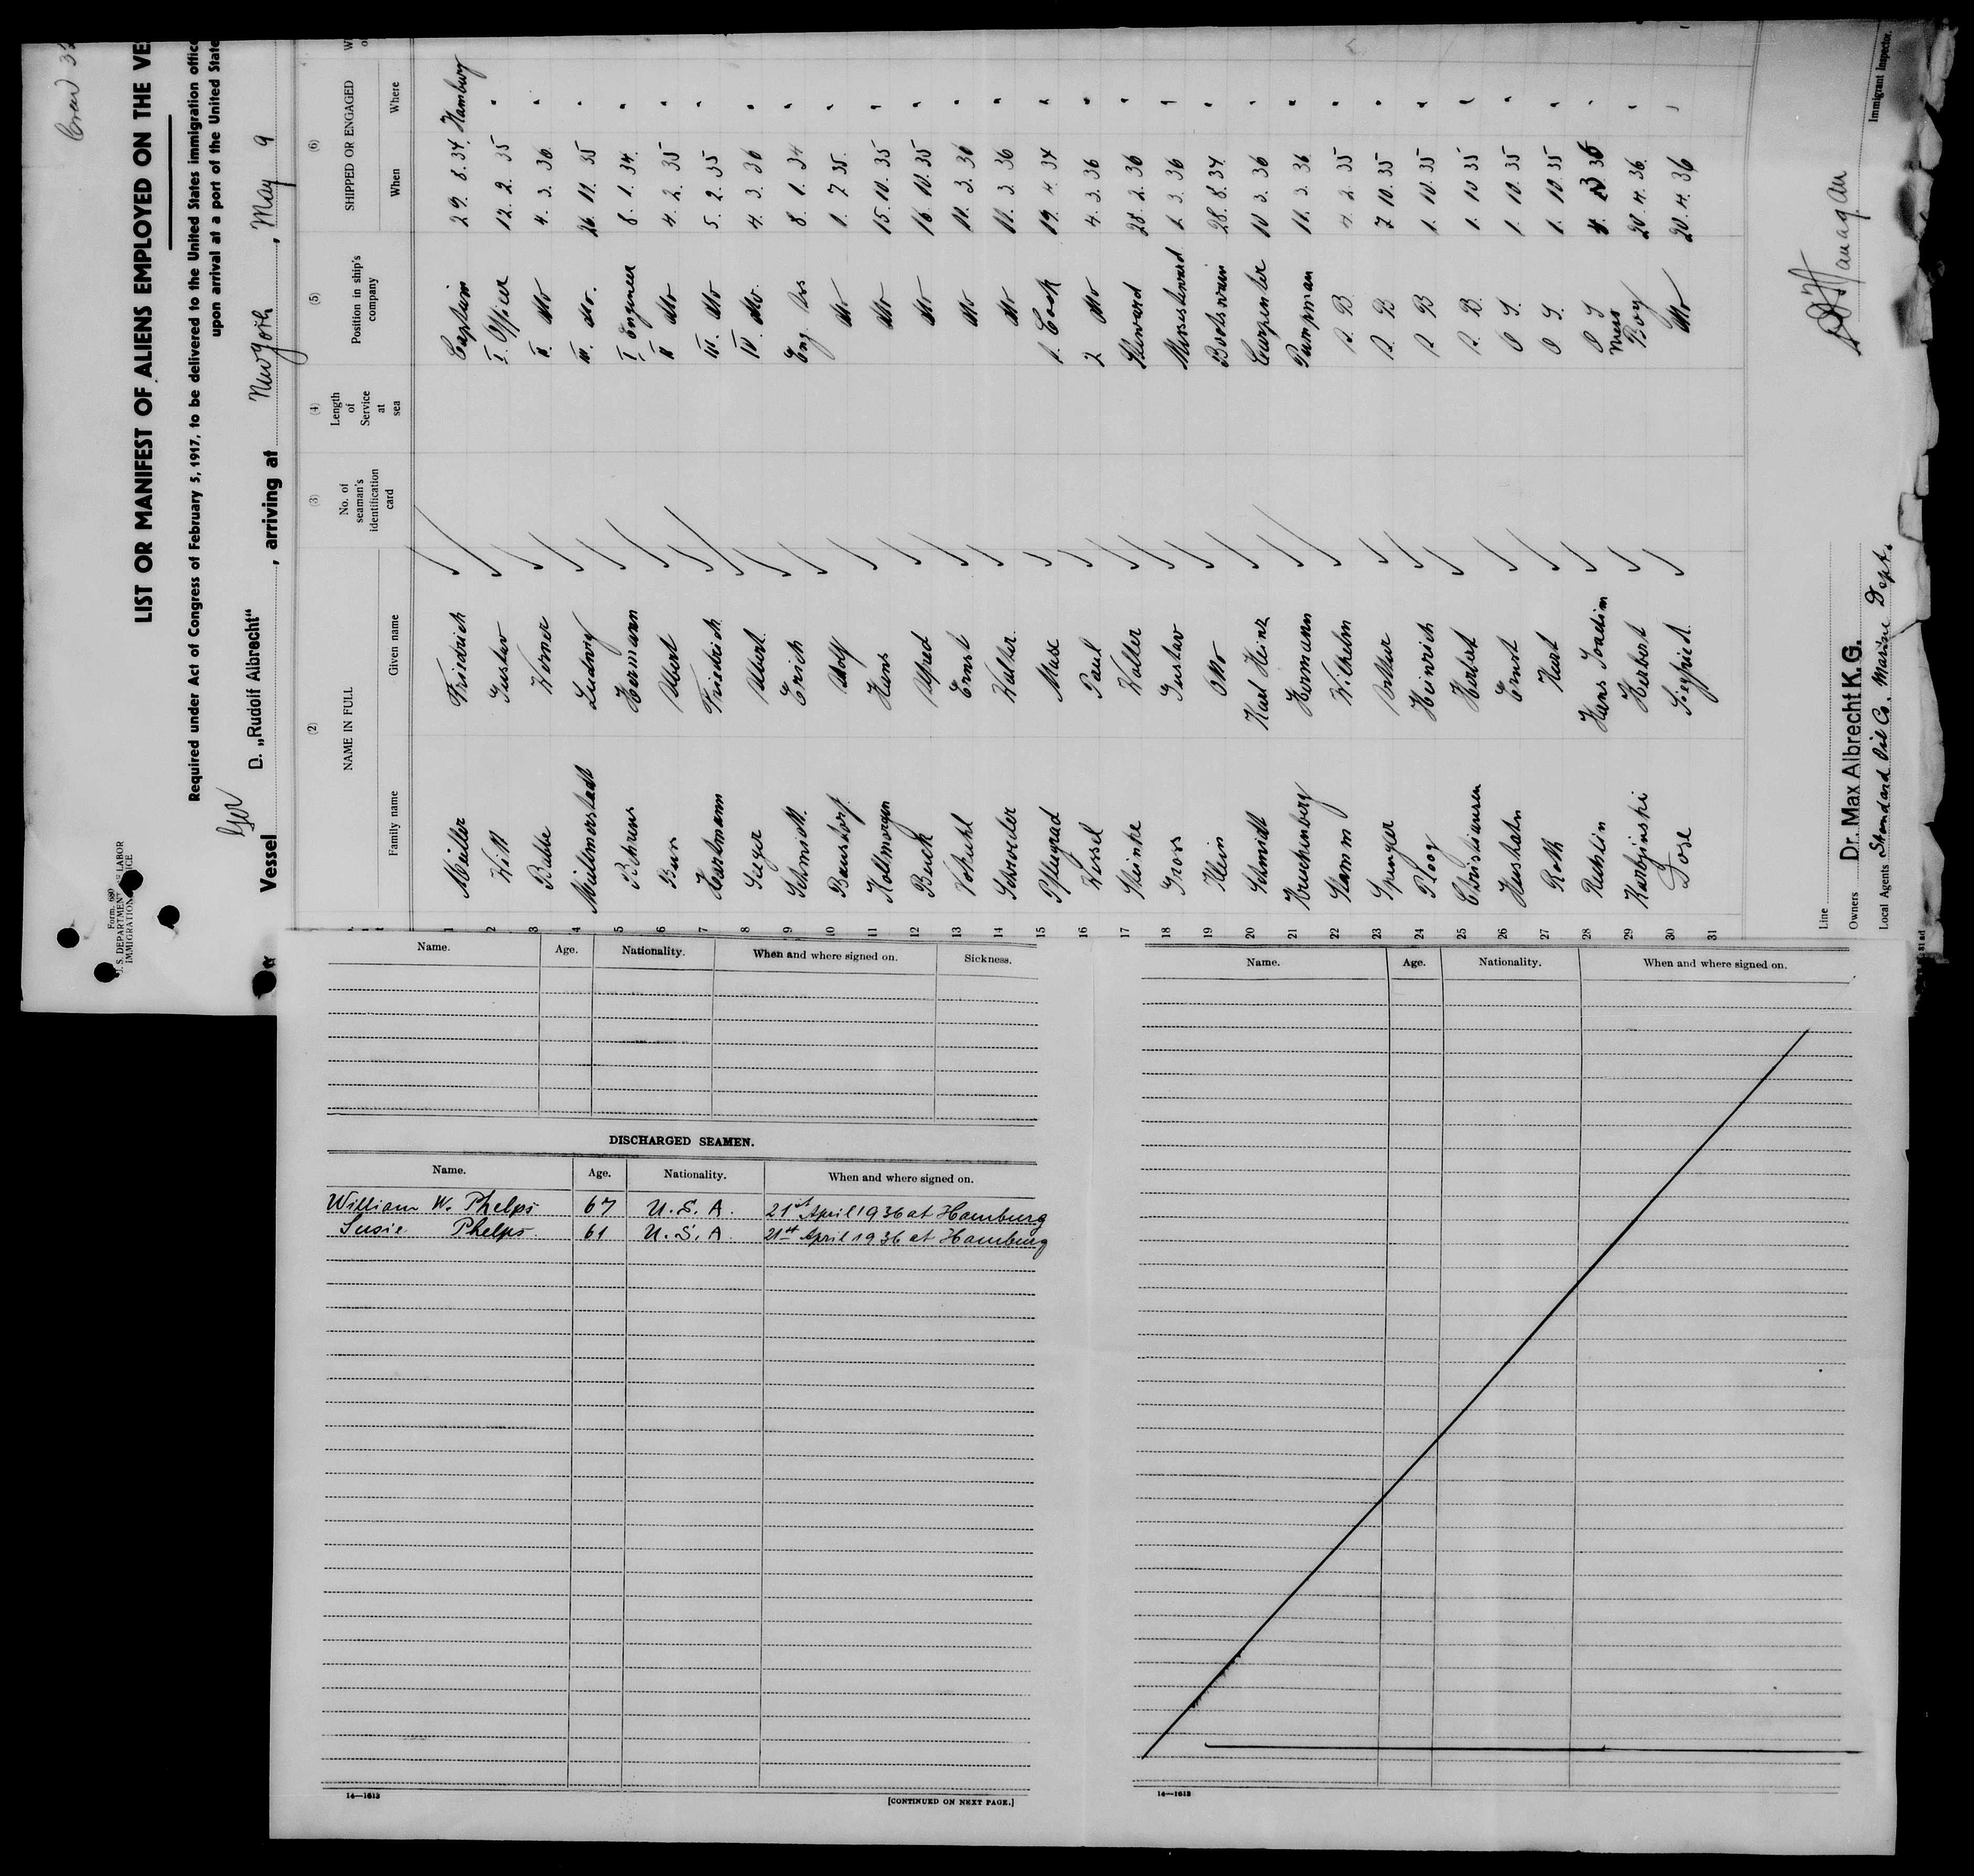 Crew 35
Form 680
U. S. DEPARTMENT OF LABOR
IMMIGRATION SERVICE
LIST OR MANIFEST OF ALIENS EMPLOYED ON THE VE
Required under Act of Congress of February 5, 1917, to be delivered to the United States immigration office
upon arrival at a port of the United State
Ger
Vessel D. „Rudolf Albrecht“ , arriving at Newyork , May 9
(2) (3) (4) (5) (6)
NAME IN FULL No. of seaman's identification card Length of Service at sea Position in ship's company SHIPPED OR ENGAGED
Family name Given name When Where
1 Müller Friedrich Captain 29. 8. 34. Hamburg
2 Witt Gustav I. Officer 12. 2. 35 "
3 Bubbe Werner II. do 4. 3. 36. "
4 Müllmerstadt Ludwig III. do. 26. 11. 35 "
5 Behrens Hermann I Engineer 8. 1. 34. "
6 Albert II do 4. 2. 35 "
7 Hartmann Friedrich III. do 5. 2. 35 "
8 Seeger Albert IV. do. 4. 3. 36 "
9 Schmidt Erich Eng. As 8. 1. 34 "
10 Adolf do 1. 7. 35. "
11 Hollmorgen Hans do 15. 10. 35 "
12 Buck Alfred do 16. 10. 35 "
13 Voskuhl Ernst do 11. 3. 36 "
14 Schroeder Walter do 11. 3. 36 "
15 Pflugrad Max 1. Cook 19. 4. 34 "
16 Wessel Paul 2 do 4. 3. 36 "
17 Steinke Walter Steward 28. 2. 36 "
18 Gross Gustav Messsteward 1. 3. 36 "
19 Klein Otto Bootswain 28. 8. 34. "
20 Schmidt Karl Heinz Carpenter 10. 3. 36 "
21 Kruckenberg Hermann Pumpman 11. 3. 36 "
22 Stamm Wilhelm A. B. 4. 2. 35 "
23 Sprenger Lothar A. B 7 10. 35 "
24 Ploog Heinrich A B 1. 10. 35 "
25 Christiansen Herbert A. B. 1. 10 35 "
26 Ernst O S. 1. 10. 35 "
27 Roth Kurt O S. 1. 10 35 "
28 Hans Joachim O S 4. 3 36 "
29 Herbert Mess Boy 20. 4. 36. "
30 Dose Siegfried. do 20. 4. 36 "
31
Line
Owners Dr. Max Albrecht K. G.
Local Agents Standard Oil Co. Marine Dept.
Immigrant Inspector.
Name. Age. Nationality. When and where signed on. Sickness.
DISCHARGED SEAMEN.
Name. Age. Nationality. When and where signed on.
William W. Phelps 67 U. S. A. 21st April 1936 at Hamburg
Susie Phelps. 61 U. S. A 21st April 1936 at Hamburg
14—1613 [CONTINUED ON NEXT PAGE.]
Name. Age. Nationality. When and where signed on.
14—1613